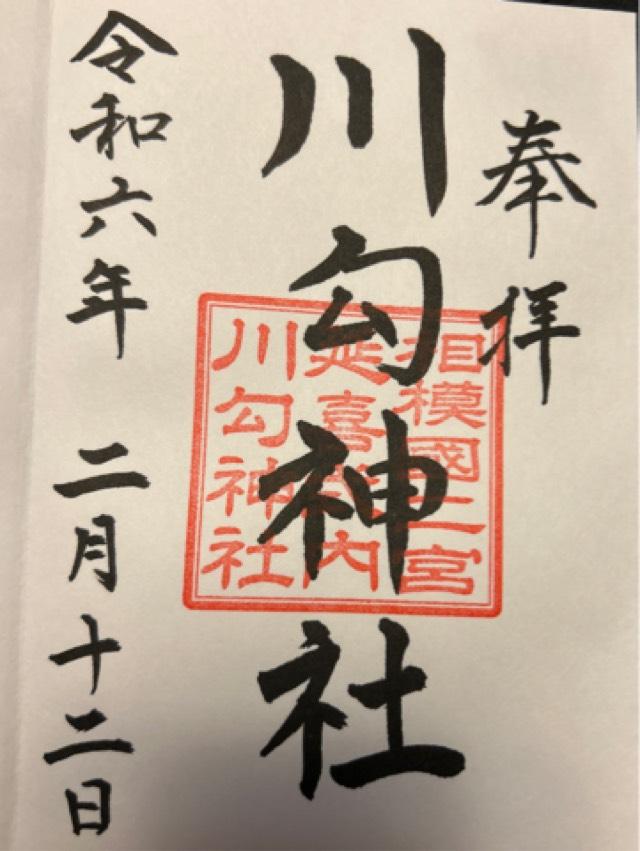 奉拝
川勾神社
相模國二宮
延喜式内
川勾神社
令和六年 二月十二日